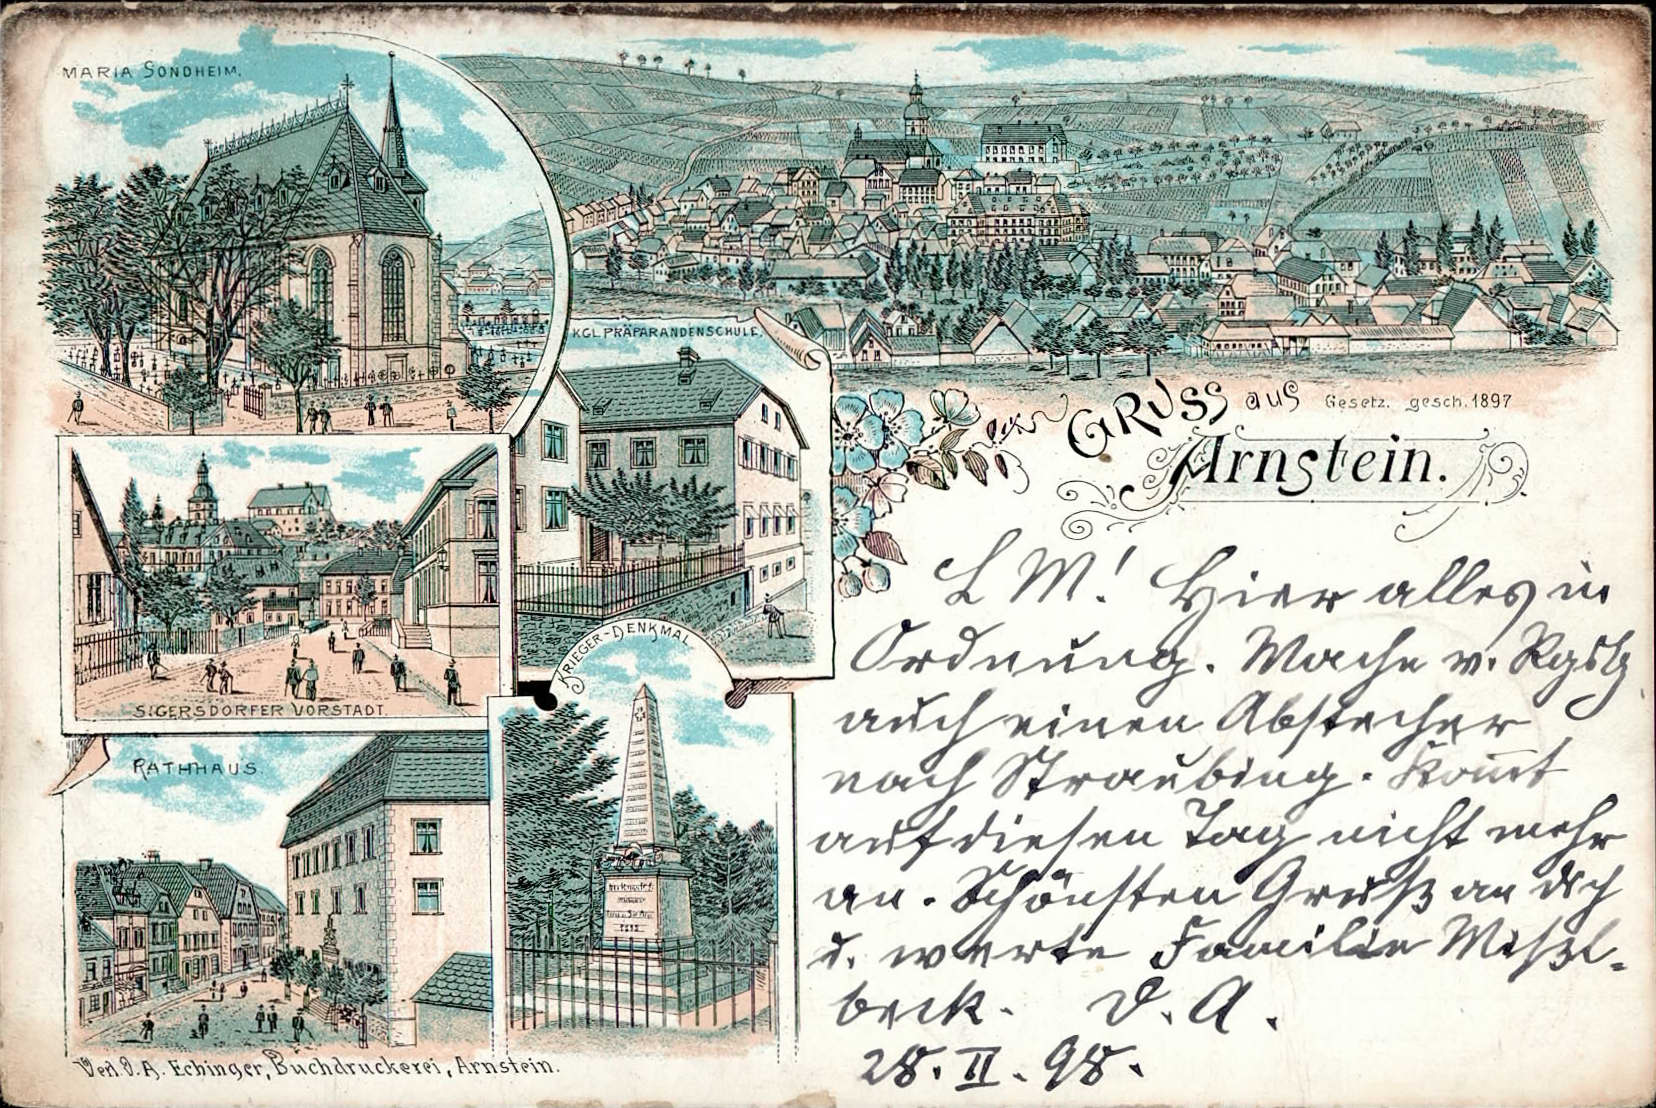 MARIA SONDHEIM.
KGL. PRÄPARANDENSCHULE.
GRUSS aus
Gesetz. gesch. 1897
Arnstein.
SIGERSDORFER VORSTADT.
KRIEGER-DENKMAL
RATHHAUS.
L M! Hier alles in
Ordnung. Mache v. Rgsbg
auch einen Abstecher
nach Straubing. Kommt
auf diesen Tag nicht mehr
an. Schönsten Gruß an dich
u. werte Familie
beck. D. A.
28. II. 98.
Verl. v. A. Echinger, Buchdruckerei, Arnstein.